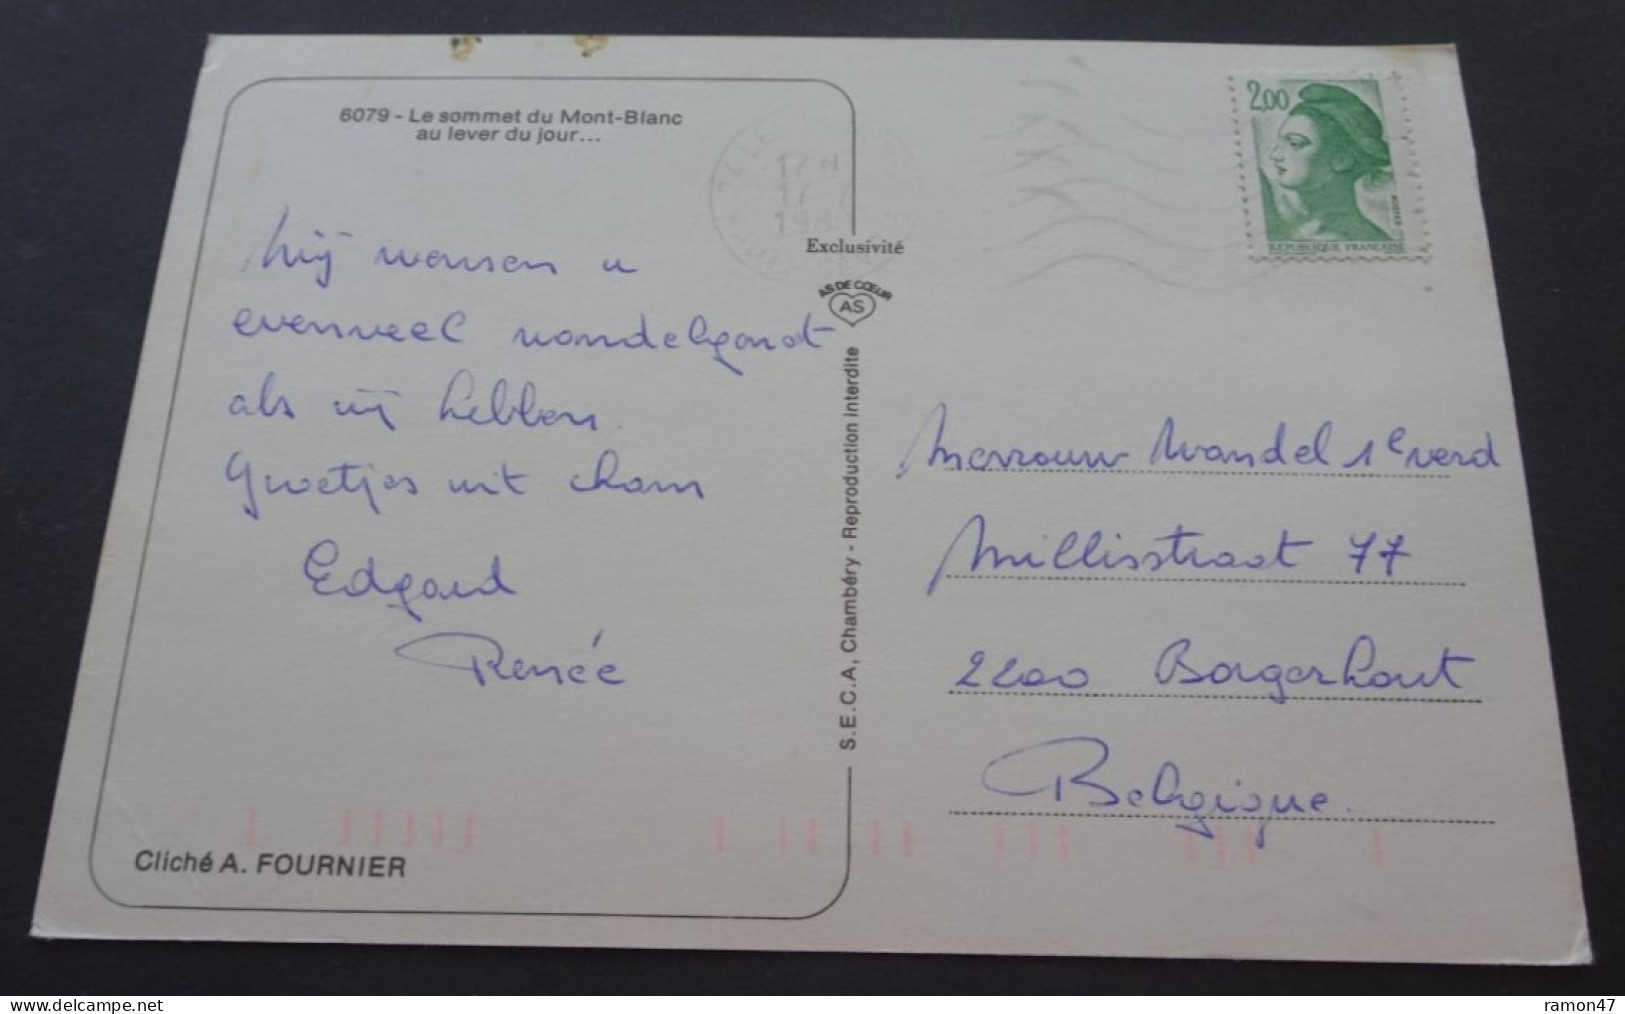 6079 - Le sommet du Mont-Blanc
au lever du jour...
Wij wensen u
evenveel wandelgenot
als wij hebben.
Groetjes uit Cham
Edgard
Renée
Cliché A. FOURNIER
74 LE
17 H
Exclusivité
AS DE CŒUR
AS
S.E.C.A, Chambéry - Reproduction interdite
2,00
POSTES
REPUBLIQUE FRANÇAISE
Mevrouw Wandel 1e verd
Millisstraat 77
2200 Borgerhout
Belgique.
www.delcampe.net
ramon47